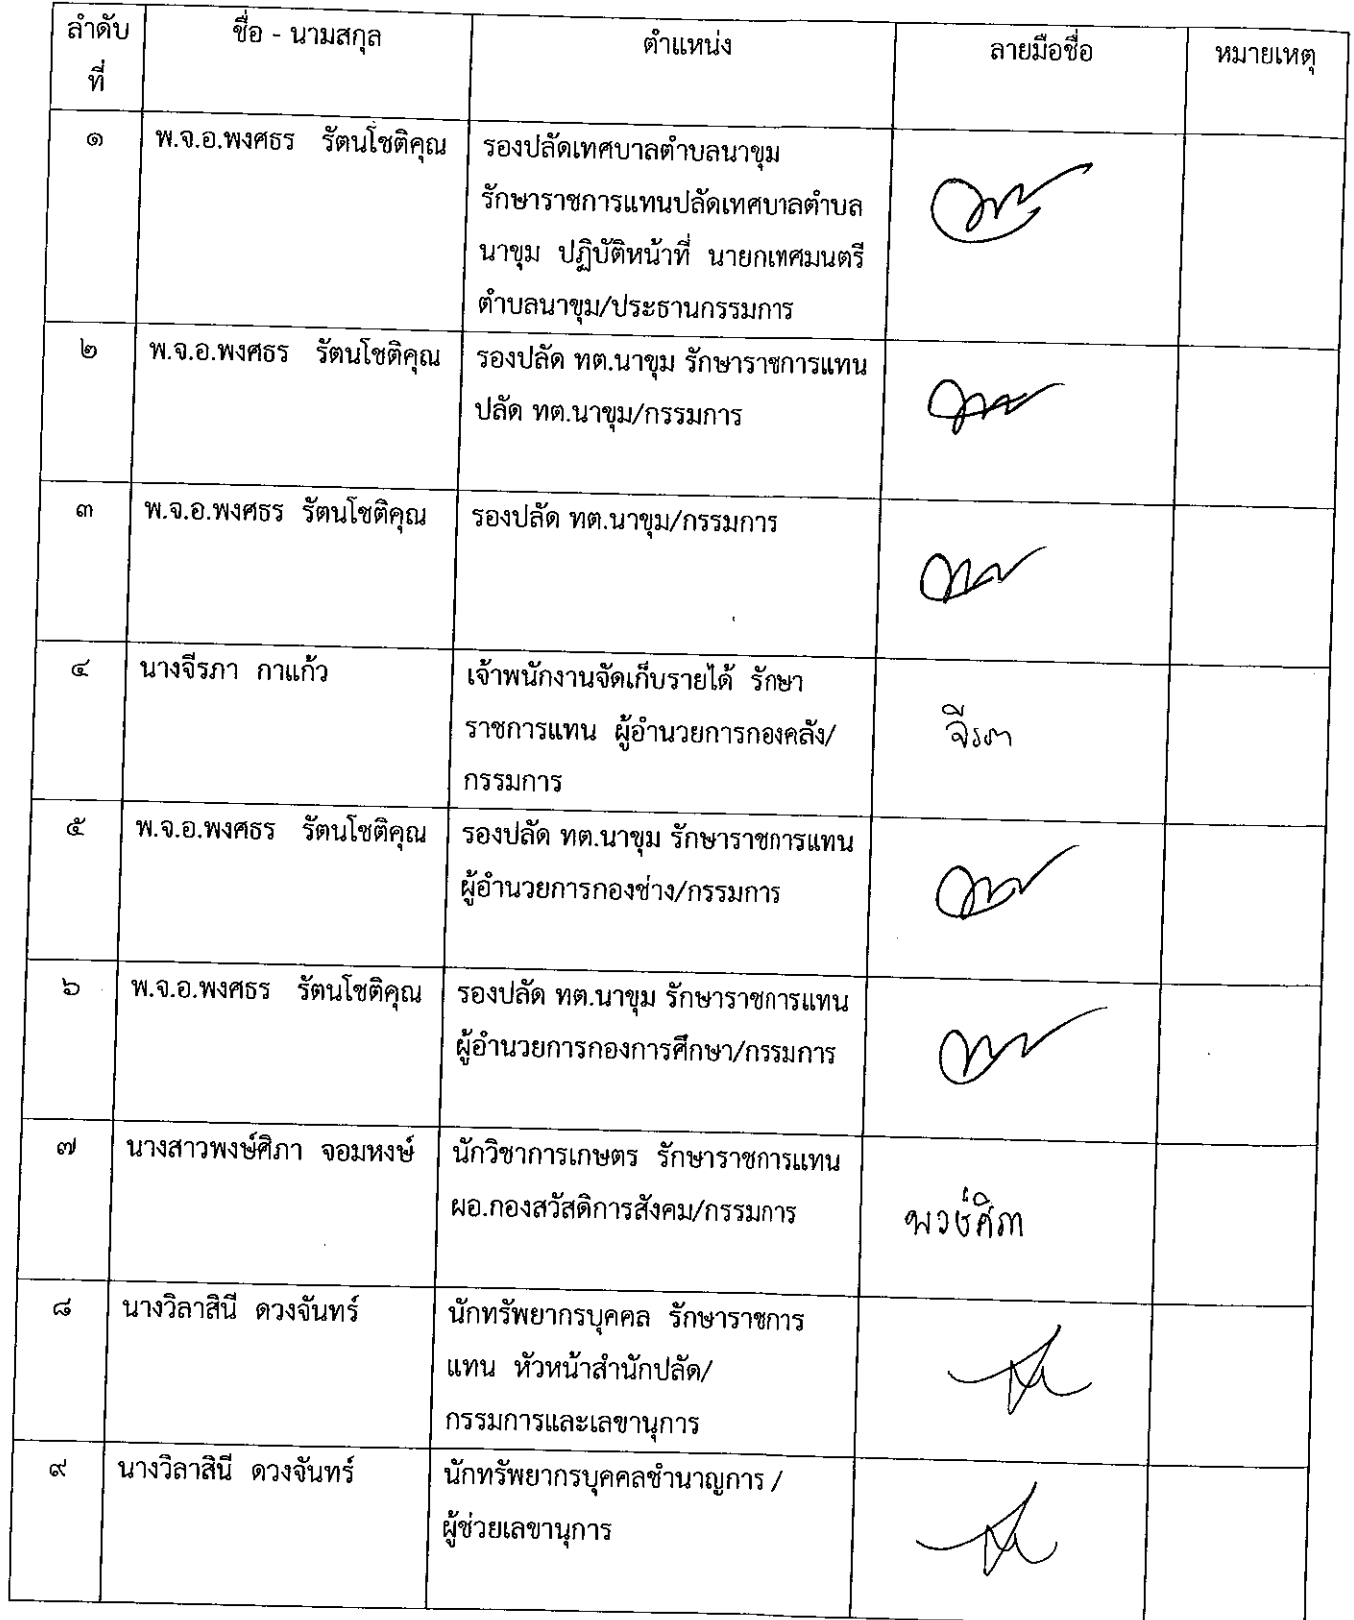 ลำดับ ชื่อ - นามสกุล ตำแหน่ง ลายมือชื่อ หมายเหตุ
ที่
๑ พ.จ.อ.พงศธร รัตนโชติคุณ รองปลัดเทศบาลตำบลนาขุม
รักษาราชการแทนปลัดเทศบาลตำบล
นาขุม ปฏิบัติหน้าที่ นายกเทศมนตรี
ตำบลนาขุม/ประธานกรรมการ
๒ พ.จ.อ.พงศธร รัตนโชติคุณ รองปลัด ทต.นาขุม รักษาราชการแทน
ปลัด ทต.นาขุม/กรรมการ
๓ พ.จ.อ.พงศธร รัตนโชติคุณ รองปลัด ทต.นาขุม/กรรมการ
๔ นางจีรภา กาแก้ว เจ้าพนักงานจัดเก็บรายได้ รักษา
ราชการแทน ผู้อำนวยการกองคลัง/ จีรภา
กรรมการ
๕ พ.จ.อ.พงศธร รัตนโชติคุณ รองปลัด ทต.นาขุม รักษาราชการแทน
ผู้อำนวยการกองช่าง/กรรมการ
๖ พ.จ.อ.พงศธร รัตนโชติคุณ รองปลัด ทต.นาขุม รักษาราชการแทน
ผู้อำนวยการกองการศึกษา/กรรมการ
๗ นางสาวพงษ์ศิภา จอมหงษ์ นักวิชาการเกษตร รักษาราชการแทน
ผอ.กองสวัสดิการสังคม/กรรมการ พงษ์ศิภา
๘ นางวิลาสินี ดวงจันทร์ นักทรัพยากรบุคคล รักษาราชการ
แทน หัวหน้าสำนักปลัด/
กรรมการและเลขานุการ
๙ นางวิลาสินี ดวงจันทร์ นักทรัพยากรบุคคลชำนาญการ /
ผู้ช่วยเลขานุการ